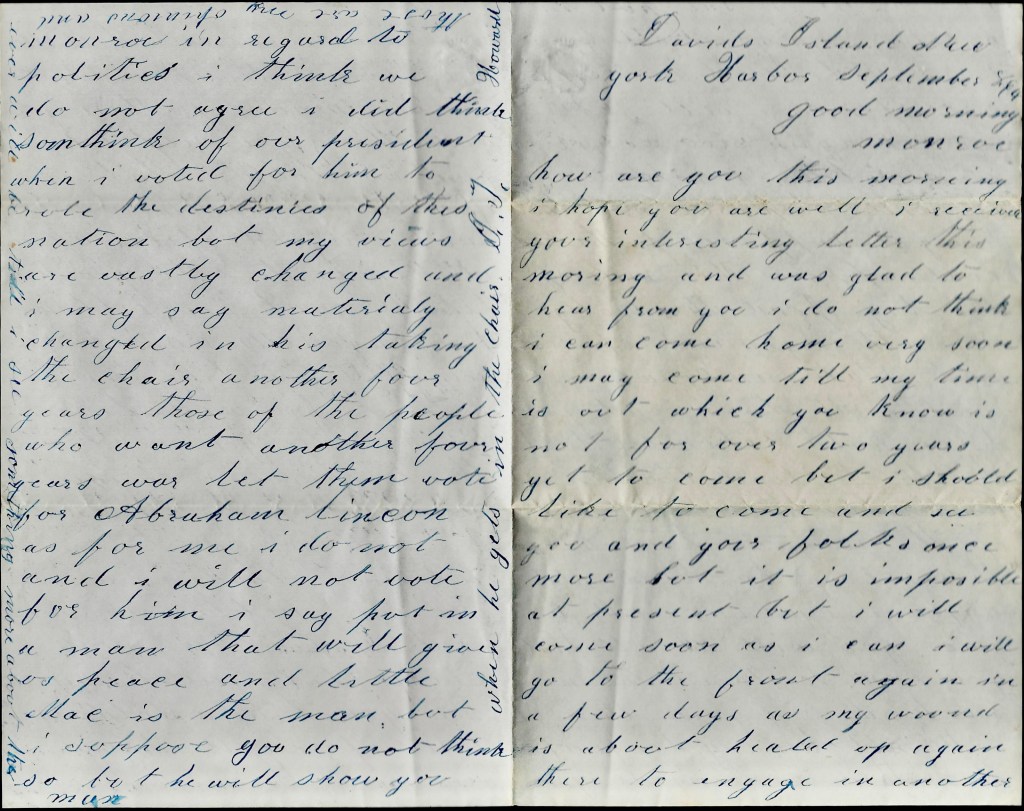 Davids Island New
york Harbor September
good morning
monroe
how are you this morning
i hope you are well i receive
your interesting letter this
moring and was glad to
hear from you i do not think
i can come home very soon
i may come till my time
is out which you know is
not for over two years
yet to come but i should
like to come and see
you and your folks once
more but it is imposible
at present but i will
come soon as i can i will
go to the front again in
a few days as my wound
is about healed up again
there to engage in another
monroe in regard to
politics i think we
do not agree i did think
somthink of our president
when i voted for him to
rule the destinies of this
nation but my views
are vastly changed and
i may say materialy
changed in his taking
the chair another four
years those of the people
who want another four
years war let them vote
for Abraham Lincon
as for me i do not
and i will not vote
for him i say put in
a man that will give
us peace and little
Mac is the man but
i suppose you do not think
so but he will show you
when he gets in the chair. D. Y. Howard
these are my opinions and
ever will be till i see somthing more about the
man